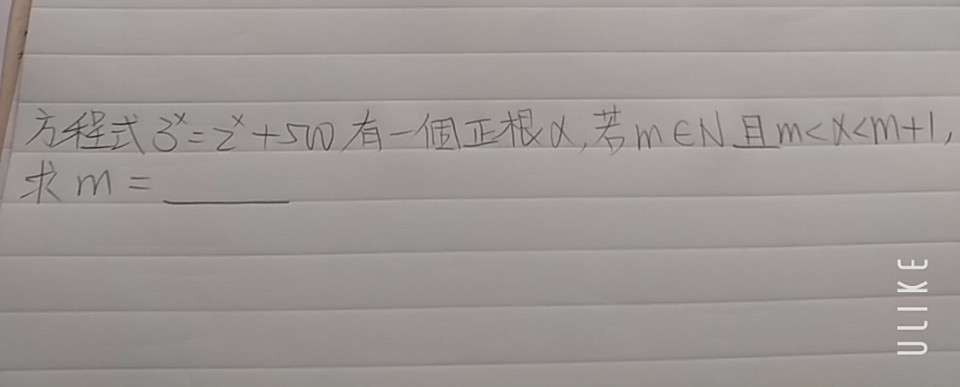 方程式 3^x=2^x+500 有一個正根α, 若 m∈N 且 m<α<m+1,
求 m = ______
ULIKE